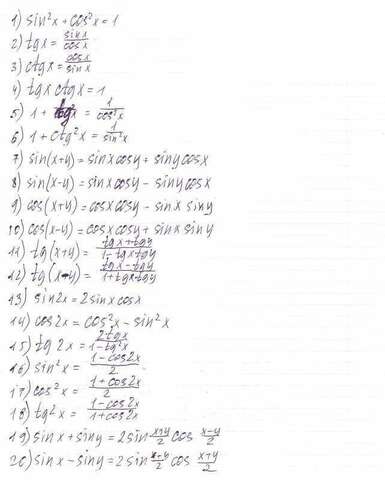 1) sin²x + cos²x = 1
2) tgx = sinx/cosx
3) ctgx = cosx/sinx
4) tgx ctgx = 1
5) 1 + tg²x = 1/cos²x
6) 1 + ctg²x = 1/sin²x
7) sin(x+y) = sinx cosy + siny cosx
8) sin(x-y) = sinx cosy - siny cosx
9) cos(x+y) = cosx cosy - sinx siny
10) cos(x-y) = cosx cosy + sinx siny
11) tg(x+y) = tgx+tgy/1-tgx tgy
12) tg(x-y) = tgx-tgy/1+tgx tgy
13) sin2x = 2sinx cosx
14) cos2x = cos²x - sin²x
15) tg2x = 2tgx/1-tg²x
16) sin²x = 1-cos2x/2
17) cos²x = 1+cos2x/2
18) tg²x = 1-cos2x/1+cos2x
19) sinx + siny = 2sin x+y/2 cos x-y/2
20) sinx - siny = 2sin x-y/2 cos x+y/2